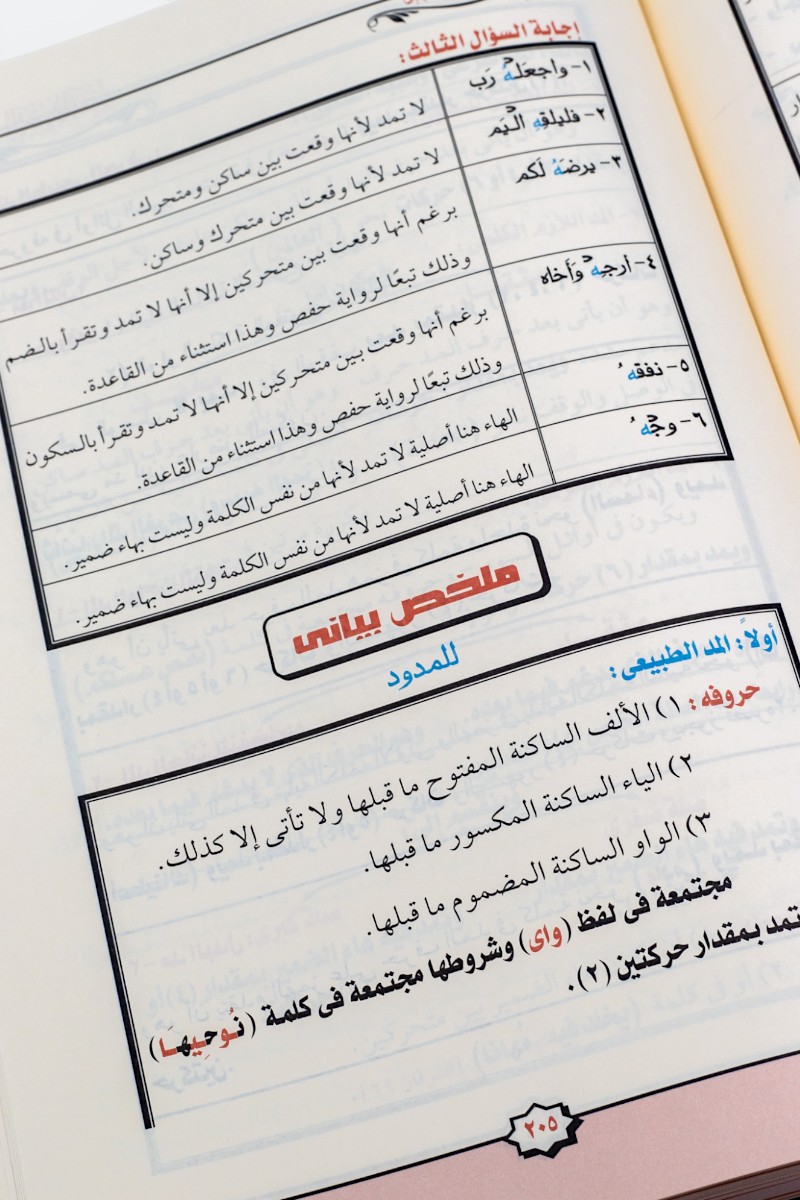 إجابة السؤال الثالث:
١- واجعَلهُ رَب
لا تمد لأنها وقعت بين ساكن ومتحرك.
٢- فليلقهِ اليَم
لا تمد لأنها وقعت بين متحرك وساكن.
٣- يرضَهُ لَكم
برغم أنها وقعت بين متحركين إلا أنها لا تمد وتقرأ بالضم
وذلك تبعًا لرواية حفص وهذا استثناء من القاعدة.
٤- أرجِهْ وَأَخاه
برغم أنها وقعت بين متحركين إلا أنها لا تمد وتقرأ بالسكون
وذلك تبعًا لرواية حفص وهذا استثناء من القاعدة.
٥- نفقهُ
الهاء هنا أصلية لا تمد لأنها من نفس الكلمة وليست بهاء ضمير.
٦- وجْهُ
الهاء هنا أصلية لا تمد لأنها من نفس الكلمة وليست بهاء ضمير.
ملخص بيانى
للمدود
أولاً: المد الطبيعى:
حروفه: ١) الألف الساكنة المفتوح ما قبلها ولا تأتى إلا كذلك.
٢) الياء الساكنة المكسور ما قبلها.
٣) الواو الساكنة المضموم ما قبلها.
مجتمعة فى لفظ (واى) وشروطها مجتمعة فى كلمة (نُوحِيهَا)
تمد بمقدار حركتين (٢).
٢٠٥